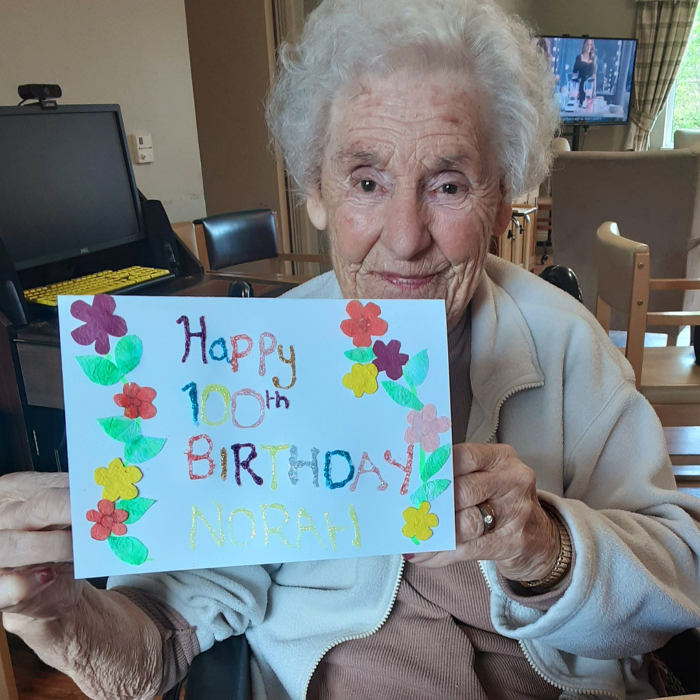 Happy
100th
BIRTHDAY
NORAH